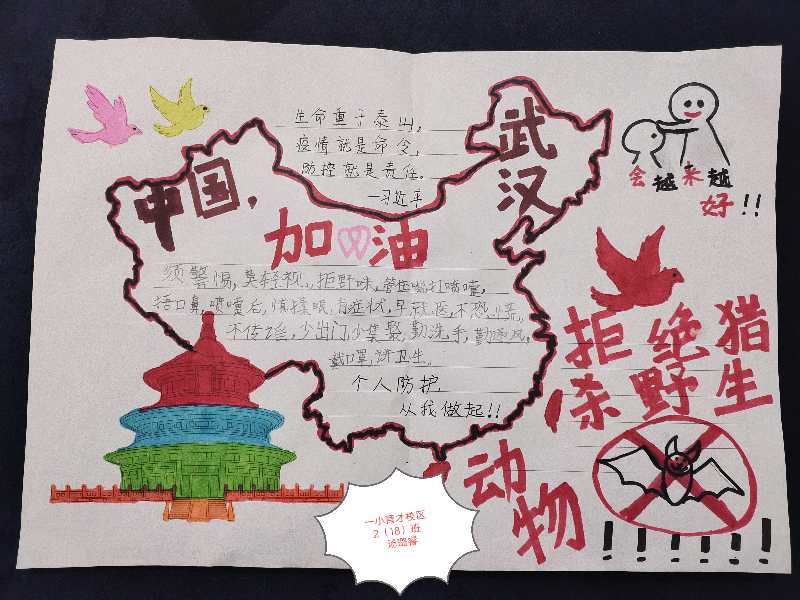 生命重于泰山，
疫情就是命令，
防控就是责任。
—习近平
武汉
中国，
加油
会越来越
好!!
须警惕，莫轻视，拒野味，管住嘴打喷嚏，
捂口鼻，喷嚏后，慎揉眼，有症状，早就医，不恐慌，
不传谣，少出门少集聚，勤洗手，勤通风，
戴口罩，讲卫生。
个人防护
从我做起!!
拒绝猎
杀野生
动物!!!!!!
一小育才校区
2（18）班